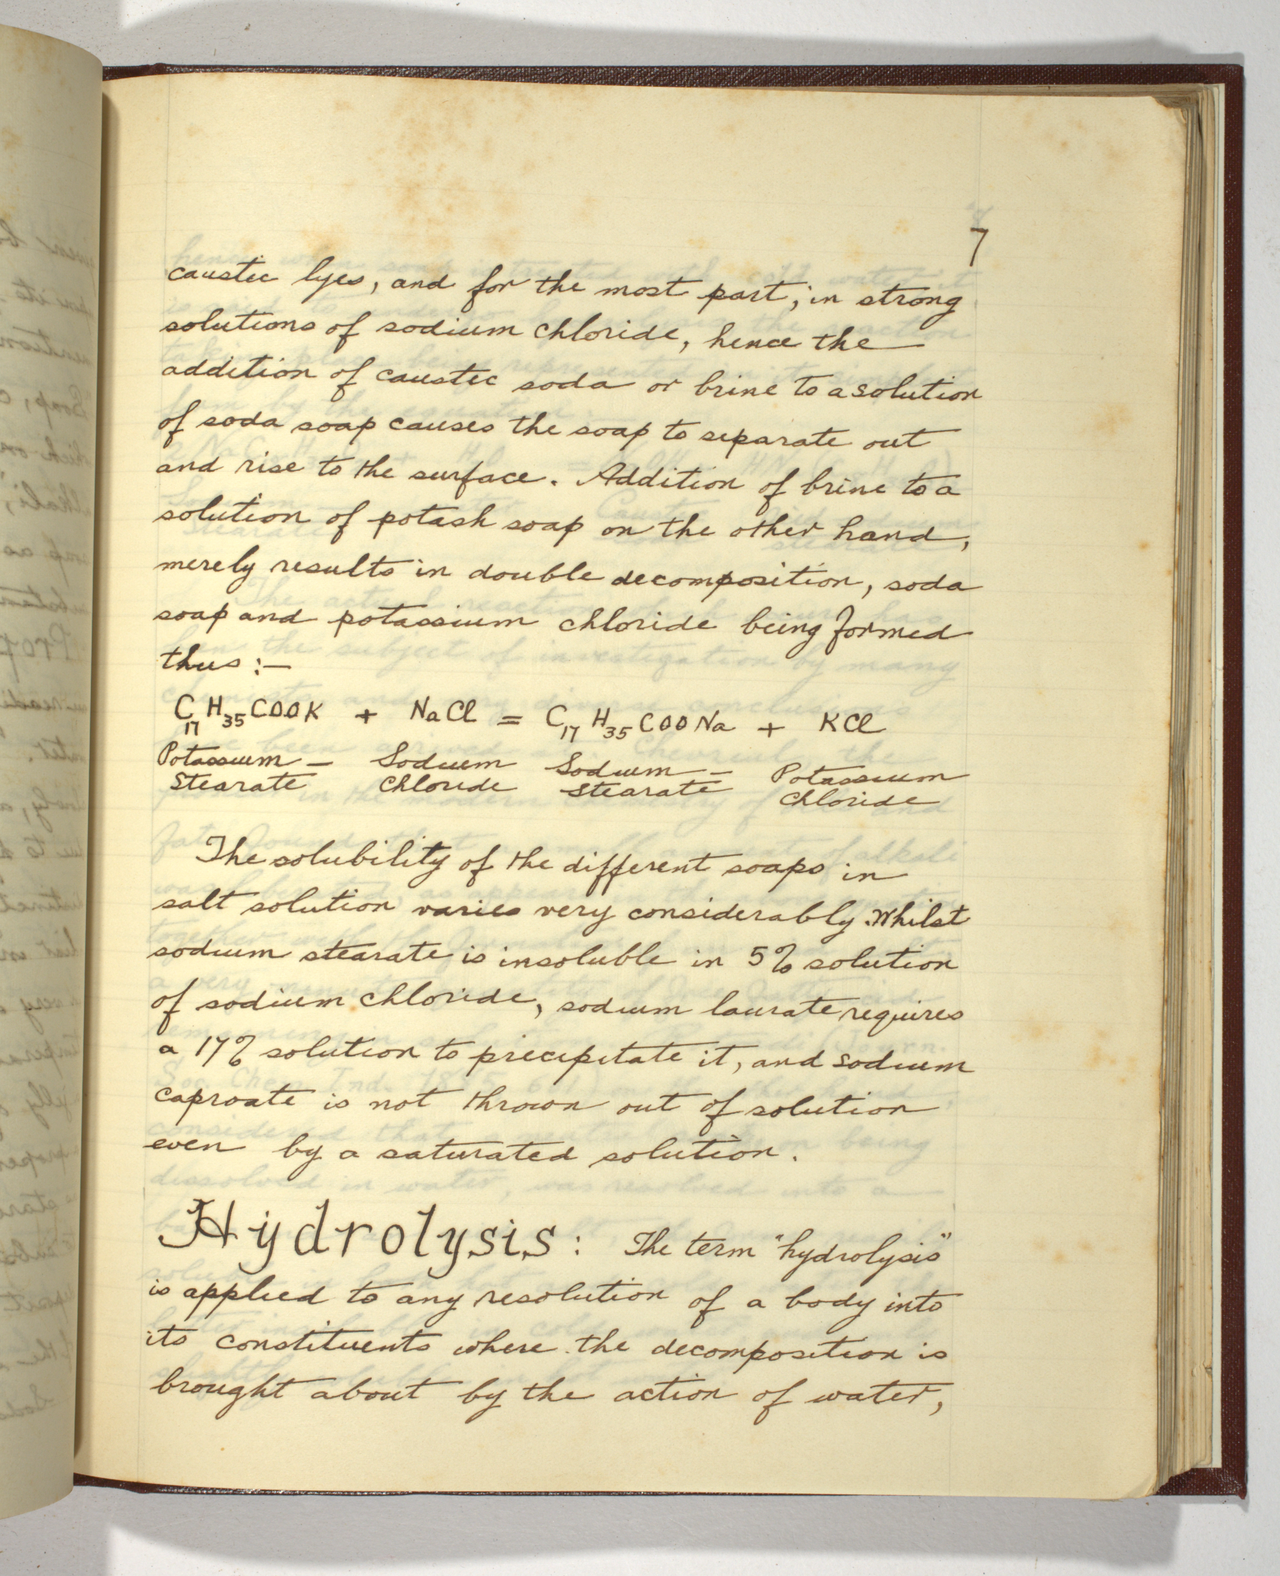 7
caustic lyes, and for the most part, in strong
solutions of sodium chloride, hence the
addition of caustic soda or brine to a solution
of soda soap causes the soap to separate out
and rise to the surface. Addition of brine to a
solution of potash soap on the other hand,
merely results in double decomposition, soda
soap and potassium chloride being formed
thus :—
C₁₇H₃₅COOK + NaCl = C₁₇H₃₅COONa + KCl
Potassium – Sodium Sodium – Potassium
Stearate Chloride Stearate Chloride
The solubility of the different soaps in
salt solution varies very considerably. Whilst
sodium stearate is insoluble in 5% solution
of sodium chloride, sodium laurate requires
a 17% solution to precipitate it, and sodium
caproate is not thrown out of solution
even by a saturated solution.
Hydrolysis: The term "hydrolysis"
is applied to any resolution of a body into
its constituents where the decomposition is
brought about by the action of water,